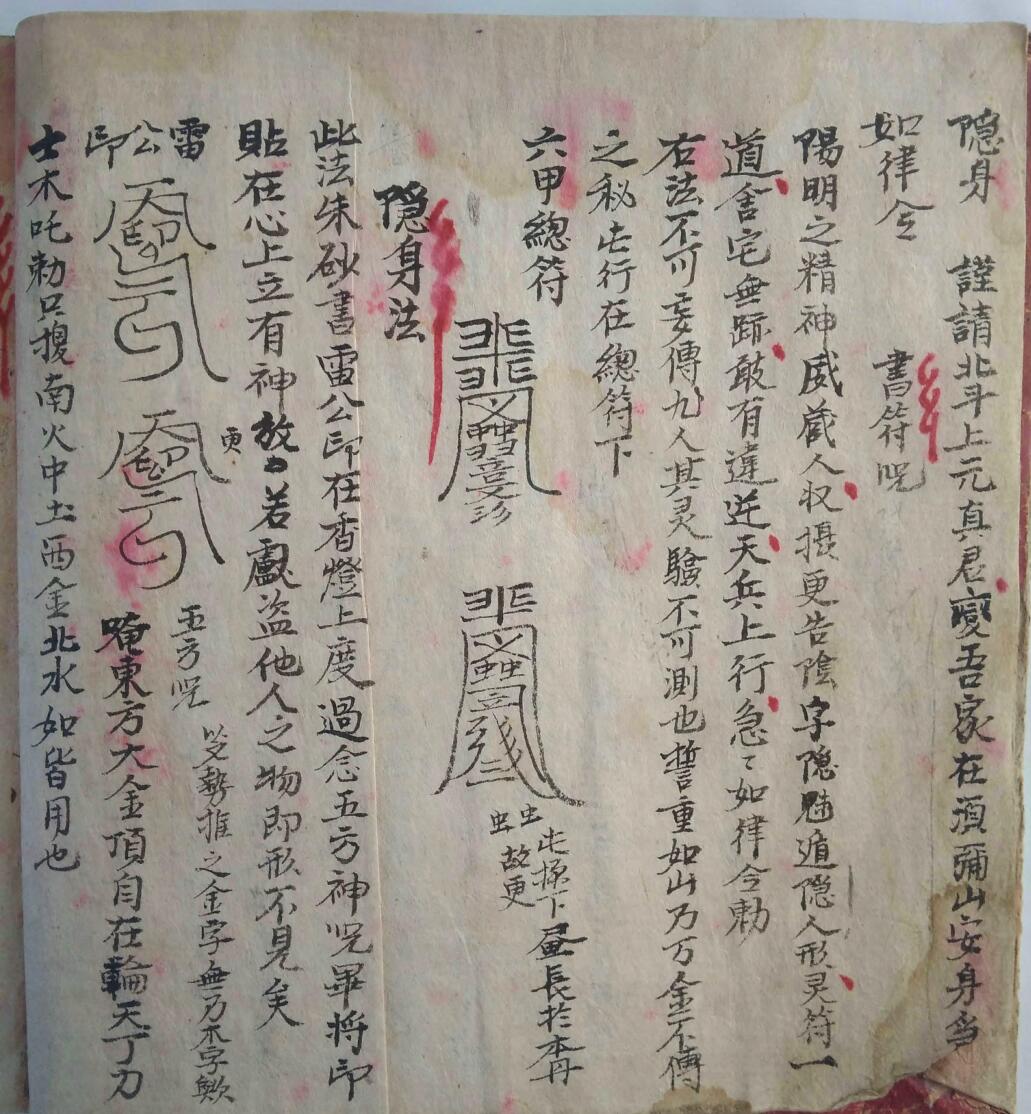 隐身　謹請北斗上元真君變吾家在須彌山安身当
如律令　書符咒
陽明之精神威藏人收摄更告陰字隐魅遁隐人形灵符一
道舍宅無跡敢有違逆天兵上行急〻如律令勅
右法不可妄傳九人其灵驗不可測也誓重如山乃万金不傳
之秘此行在總符下
六甲總符
此　下
虫虫故更
昼長於本丹
隐身法
此法朱砂書雷公印在香燈上度過念五方神咒畢将印
貼在心上立有神放〻若戲盗他人之物即形不見矣
更
雷公印
五方咒
勢推之金字無乃木字歟
唵東方大金頂自在輪天丁力
士木吒勅 南火中土西金北水如皆用也